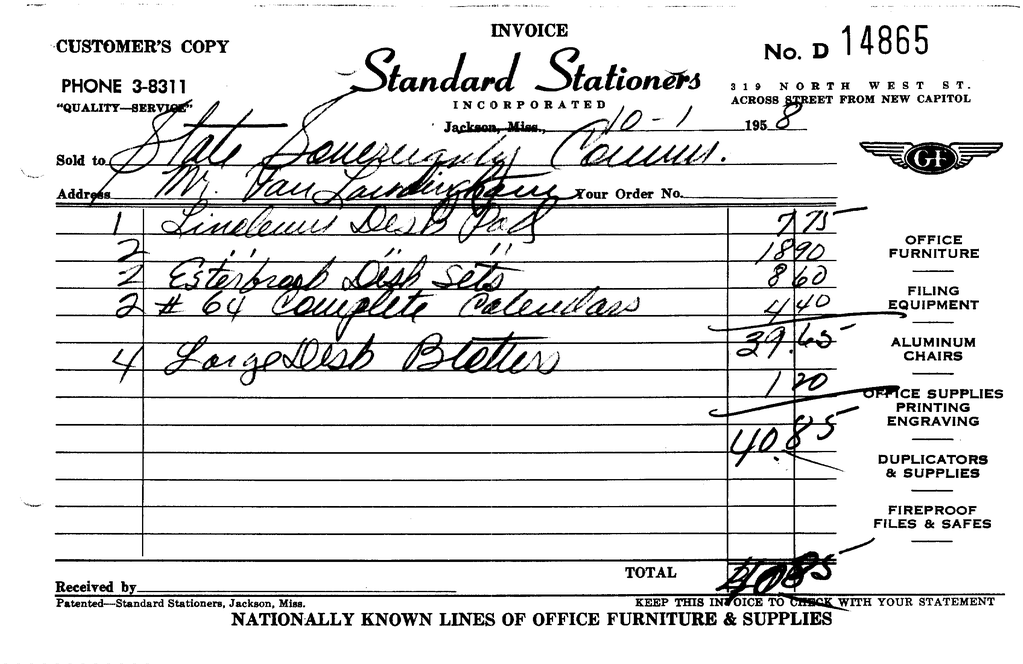 INVOICE
CUSTOMER'S COPY
No. D 14865
PHONE 3-8311
Standard Stationers
319 NORTH WEST ST.
"QUALITY—SERVICE"
INCORPORATED
ACROSS STREET FROM NEW CAPITOL
Jackson, Miss., 10-1 1958
Sold to State Sovereignty Comm.
GF
Address Mr. Van Landingham Your Order No.
1 Linoleum Desk Pad 7 75
2 " " " 18 90
2 Esterbrook Desk Sets 8 60
2 # 64 Complete Calendars 4 40
39.65
4 Large Desk Blotters
1 20
40.85
OFFICE
FURNITURE
FILING
EQUIPMENT
ALUMINUM
CHAIRS
OFFICE SUPPLIES
PRINTING
ENGRAVING
DUPLICATORS
& SUPPLIES
FIREPROOF
FILES & SAFES
TOTAL 40 85
Received by
Patented—Standard Stationers, Jackson, Miss.
KEEP THIS INVOICE TO CHECK WITH YOUR STATEMENT
NATIONALLY KNOWN LINES OF OFFICE FURNITURE & SUPPLIES